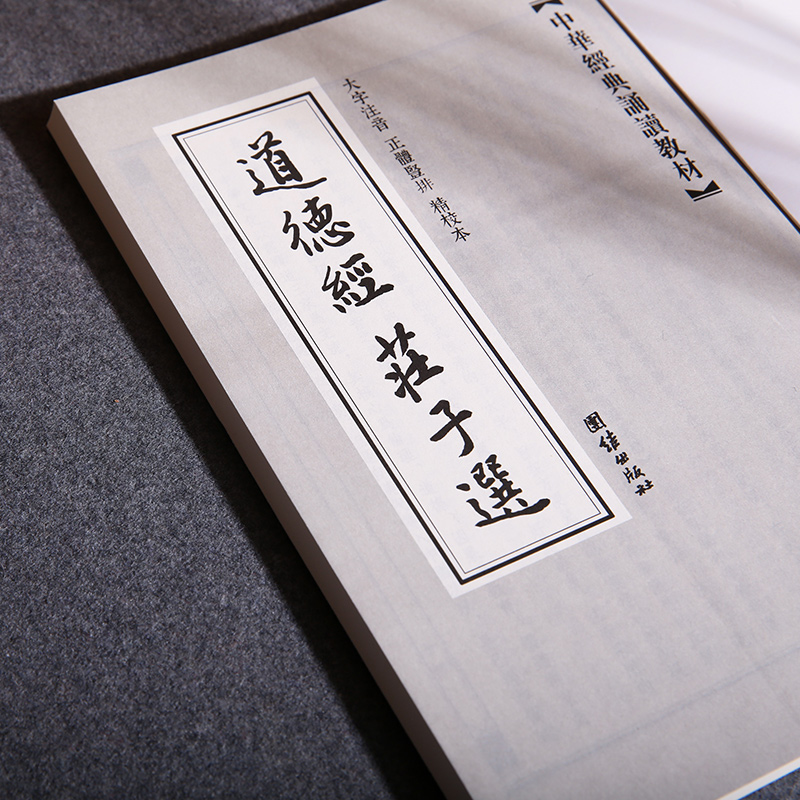 【中華經典誦讀教材】
大字注音 正體豎排 精校本
道德經 莊子選
團结出版社